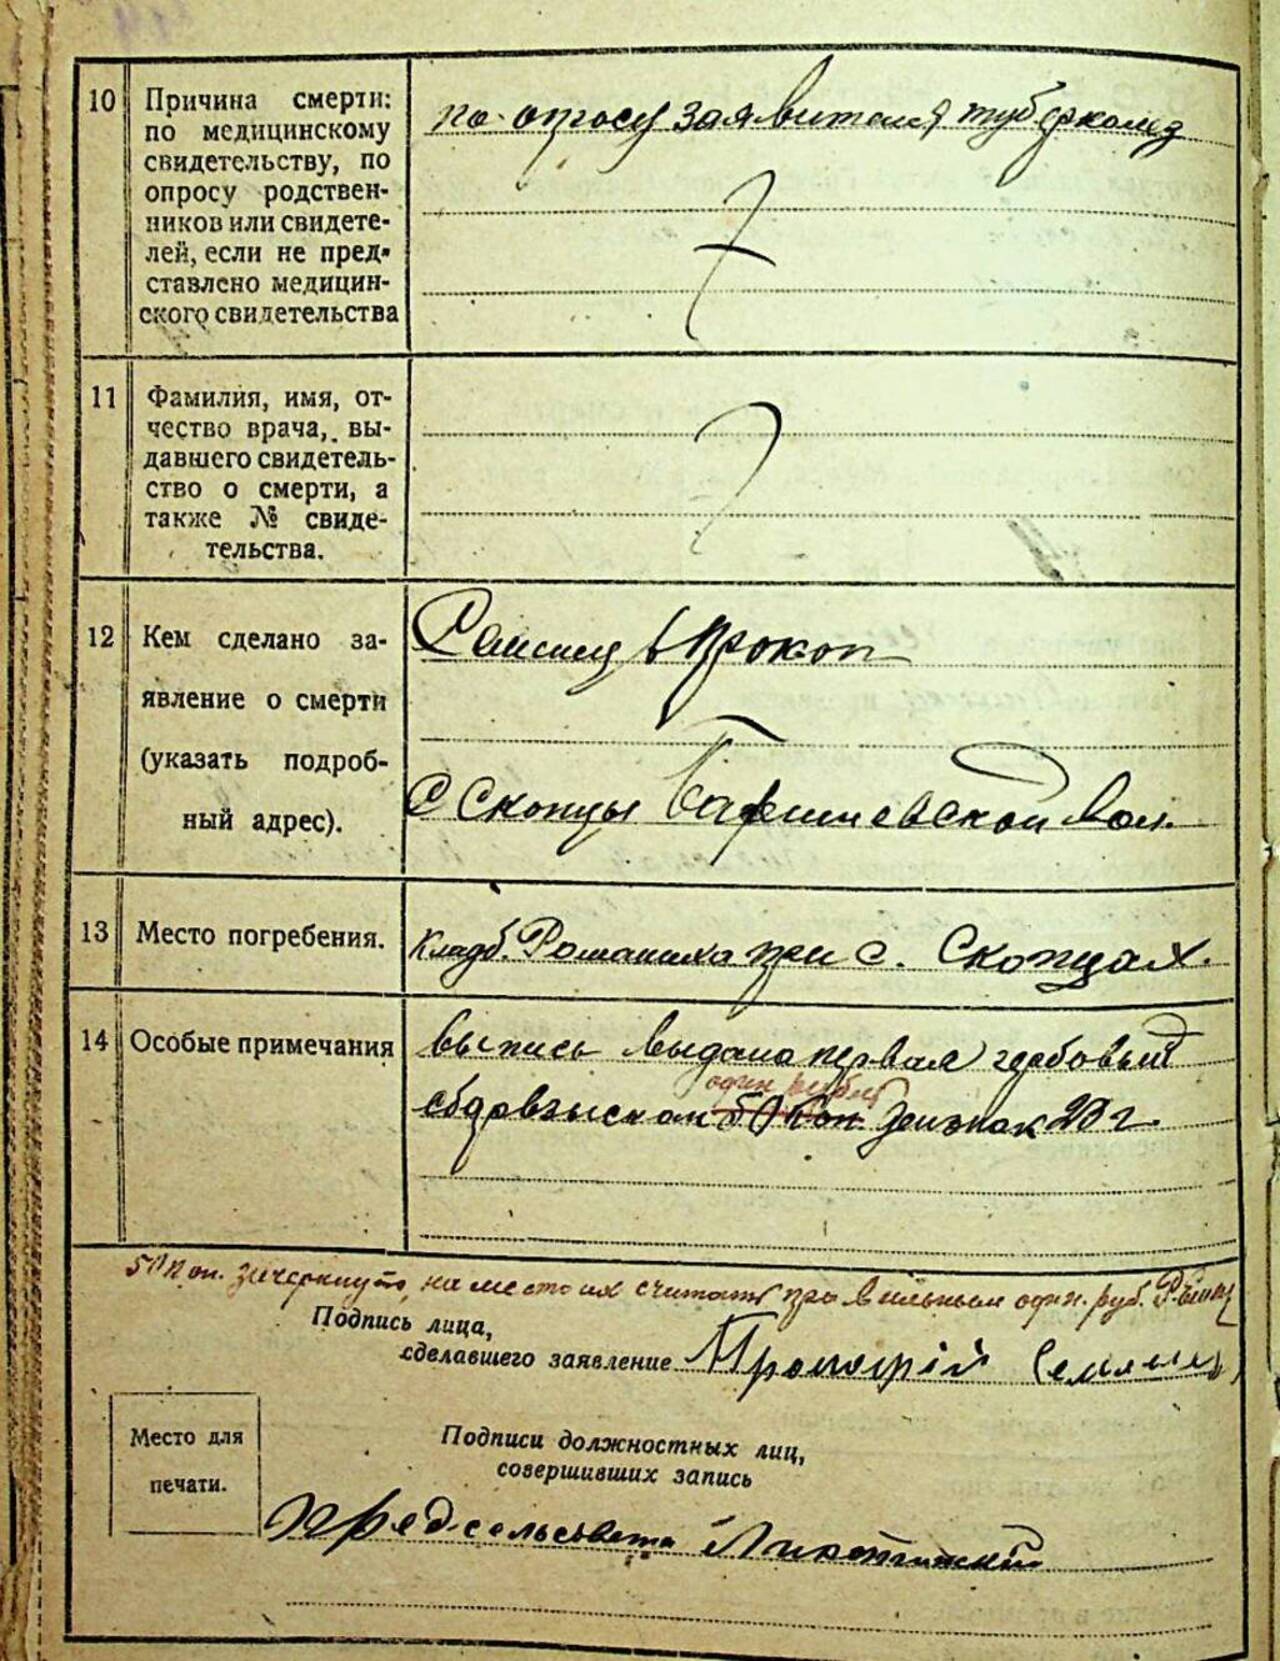 10 Причина смерти:
по медицинскому
свидетельству, по
опросу родствен-
ников или свидете-
лей, если не пред-
ставлено медицин-
ского свидетельства
по опросу заявителя туберкулез
11 Фамилия, имя, от-
чество врача, вы-
давшего свидетель-
ство о смерти, а
также № свиде-
тельства.
12 Кем сделано за-
явление о смерти
(указать подроб-
ный адрес).
Прокоп
С Скопцы вол.
13 Место погребения.
кладб. при с. Скопцах.
14 Особые примечания
выпись выдана первая гербовый
один рубль
сбор взыскан 50 коп
50 коп. зачеркнуто, на место их считать правильным один. руб.
Подпись лица,
сделавшего заявление
Место для
печати.
Подписи должностных лиц,
совершивших запись
пред. сельсовета